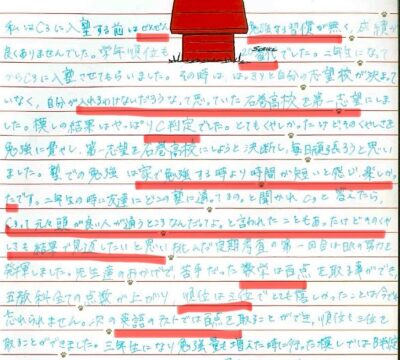 私はC3に入塾する前はぜんぜん勉強する習慣が無く、成績が
良くありませんでした。学年順位も 台でした。二年生になって
からC3に入塾させてもらいました。その時は、はっきりと自分の志望校が決まって
いなく、自分が入れるわけないだろうなって思っていた石巻高校を第一志望にしま
した。模しの結果はやっぱりC判定でした。とてもくやしかったけどそのくやしさを
勉強に費やし、第一志望を石巻高校にしようと決断し、毎日頑張ろうと思い
ました。塾での勉強は家で勉強する時より時間が短いと感じ、楽しかっ
たです。二年生の時に友達にどこの塾に通ってるの。と聞かれC3と答えたら、
C3って元々頭が良い人が通うところなんだってよ。と言われたこともあったけどそのくや
しさを結果で見返したいと思い挑んだ定期考査の第一回目は日の努力を
発揮しました。先生達のおかげで、苦手だった数学は百点を取る事ができ、
五教科全ての点数が上がり、順位は三位でとても嬉しかったことは今でも
忘れられません。次の英語のテストでは百点を取ることができ、順位も二位を
取ることができました。三年生になり勉強量も増えた時に行った模しではB判定